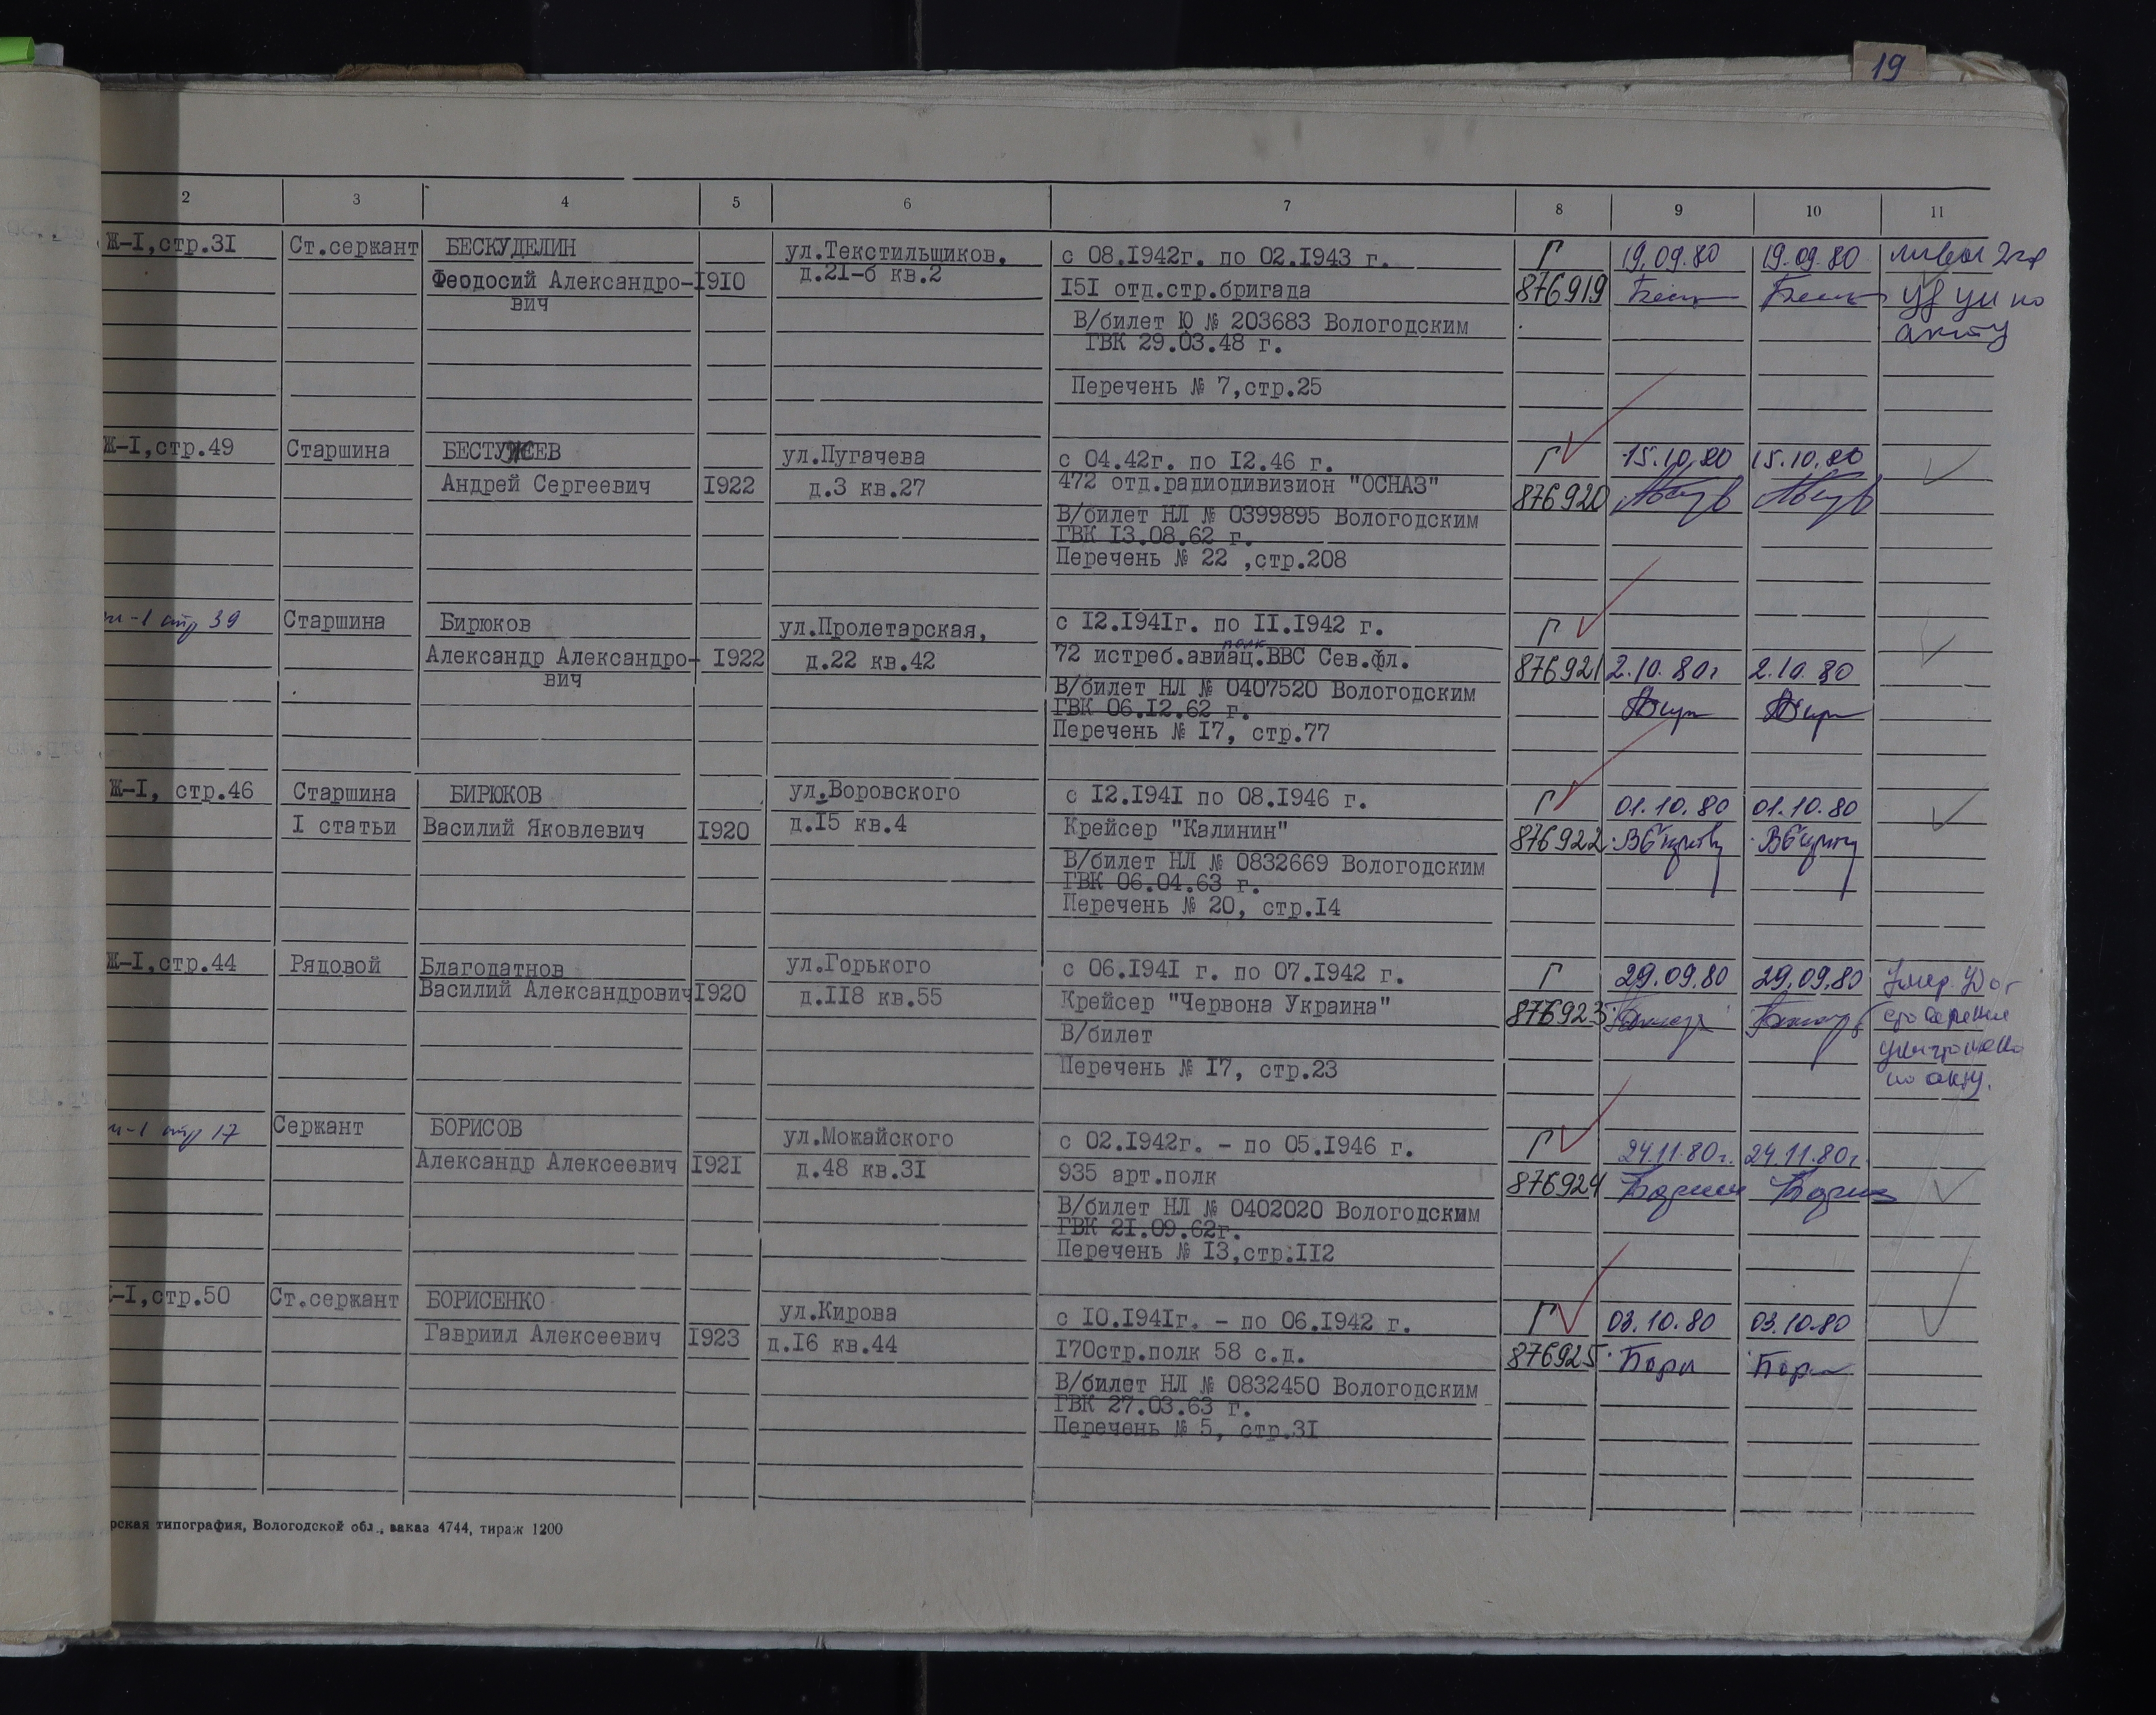 19
2 3 4 5 6 7 8 9 10 11
Ж-I,стр.3I Ст.сержант БЕСКУДЕЛИН ул.Текстильщиков, с 08.I942г. по 02.I943 г. Г 19.09.80 19.09.80
Феодосий Александро- I9I0 д.2I-б кв.2 I5I отд.стр.бригада 876919
вич
по
В/билет Ю № 203683 Вологодским
акту
ГВК 29.03.48 г.
Перечень № 7,стр.25
Ж-I,стр.49 Старшина БЕСТУЖЕВ ул.Пугачева с 04.42г. по I2.46 г. Г 15.10.80 15.10.80
Андрей Сергеевич I922 д.3 кв.27 472 отд.радиодивизион "ОСНАЗ" 876920
В/билет НЛ № 0399895 Вологодским
ГВК I3.08.62 г.
Перечень № 22 ,стр.208
-1 стр 39 Старшина Бирюков ул.Пролетарская, с I2.I94Iг. по II.I942 г. Г
полк
Александр Александро- I922 д.22 кв.42 72 истреб.авиац.ВВС Сев.фл. 876921 2.10.80г 2.10.80
вич
В/билет НЛ № 0407520 Вологодским
ГВК 06.I2.62 г.
Перечень № I7, стр.77
Ж-I, стр.46 Старшина БИРЮКОВ ул.Воровского с I2.I94I по 08.I946 г. Г 01.10.80 01.10.80
I статьи Василий Яковлевич I920 д.I5 кв.4 Крейсер "Калинин" 876922
В/билет НЛ № 0832669 Вологодским
ГВК 06.04.63 г.
Перечень № 20, стр.I4
Ж-I,стр.44 Рядовой Благодатнов ул.Горького с 06.I94I г. по 07.I942 г. Г 29.09.80 29.09.80 Умер
Василий Александрович I920 д.II8 кв.55 Крейсер "Червона Украина" 876923
В/билет
Перечень № I7, стр.23
по акту.
-1 стр 17 Сержант БОРИСОВ ул.Можайского с 02.I942г. - по 05.I946 г. Г 24.11.80г. 24.11.80г.
Александр Алексеевич I92I д.48 кв.3I 935 арт.полк 876924
В/билет НЛ № 0402020 Вологодским
ГВК 2I.09.62г.
Перечень № I3,стр.II2
-I,стр.50 Ст.сержант БОРИСЕНКО ул.Кирова с I0.I94Iг. - по 06.I942 г. Г 03.10.80 03.10.80
Гавриил Алексеевич I923 д.I6 кв.44 I70стр.полк 58 с.д. 876925
В/билет НЛ № 0832450 Вологодским
ГВК 27.03.63 г.
Перечень № 5, стр.3I
рская типография, Вологодской обл., заказ 4744, тираж 1200